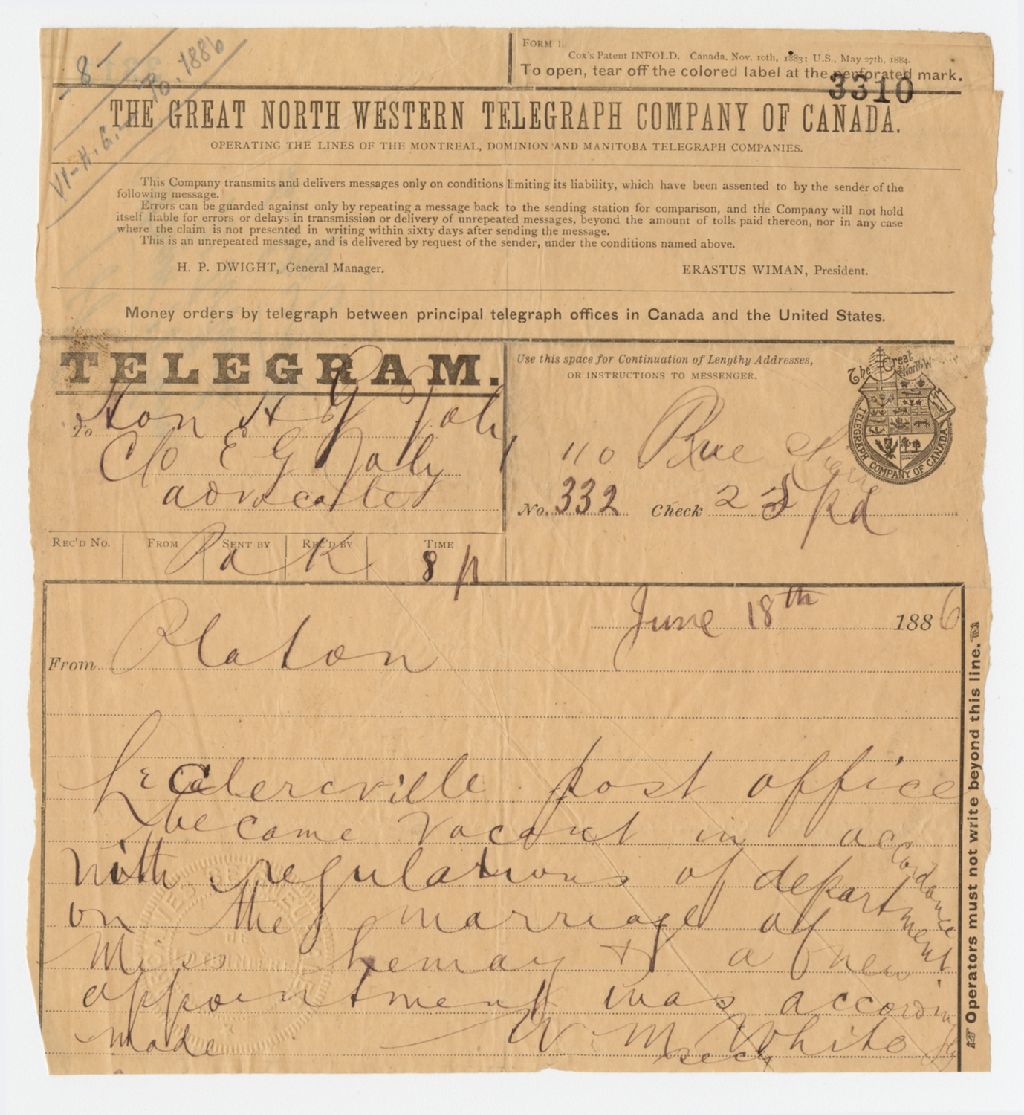 - 8 -
Po. 1886
VI-H.G.
FORM 1.
COX'S PATENT INFOLD. Canada, Nov. 10th, 1883; U.S., May 27th, 1884.
To open, tear off the colored label at the perforated mark.
3310
THE GREAT NORTH WESTERN TELEGRAPH COMPANY OF CANADA.
OPERATING THE LINES OF THE MONTREAL, DOMINION AND MANITOBA TELEGRAPH COMPANIES.
This Company transmits and delivers messages only on conditions limiting its liability, which have been assented to by the sender of the
following message.
Errors can be guarded against only by repeating a message back to the sending station for comparison, and the Company will not hold
itself liable for errors or delays in transmission or delivery of unrepeated messages, beyond the amount of tolls paid thereon, nor in any case
where the claim is not presented in writing within sixty days after sending the message.
This is an unrepeated message, and is delivered by request of the sender, under the conditions named above.
H. P. DWIGHT, General Manager.
ERASTUS WIMAN, President.
Money orders by telegraph between principal telegraph offices in Canada and the United States.
TELEGRAM.
To Hon H G Joly
C/o E G Joly
advocate
Use this space for Continuation of Lengthy Addresses,
OR INSTRUCTIONS TO MESSENGER.
The Great North Western
TELEGRAPH COMPANY OF CANADA
110 Rue
No. 332 Check 25 pd
REC'D NO. FROM SENT BY REC'D BY TIME
Pa K 8 p
June 18th 1886
From Platon
Leclercville post office
became vacant in accordance
with regulations of department
on the marriage of
Miss Lemay & a new
appointment was accordingly
made W M White
secy
Operators must not write beyond this line.